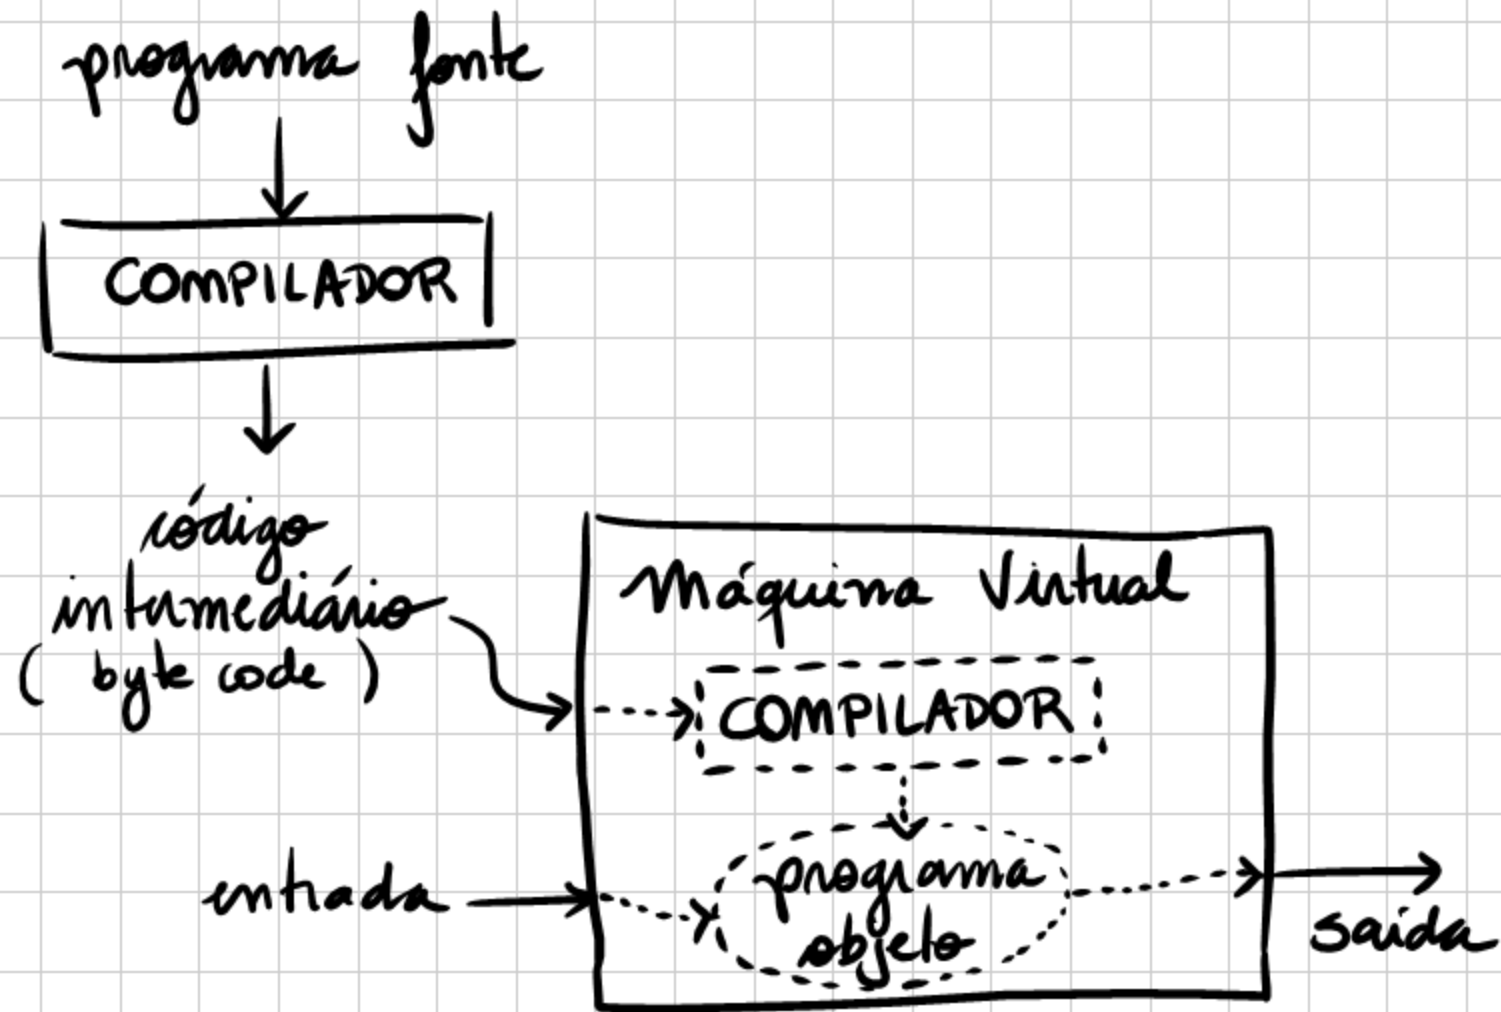 programa fonte
COMPILADOR
código
intermediário
(byte code)
Máquina Virtual
COMPILADOR
entrada
programa
objeto
saída